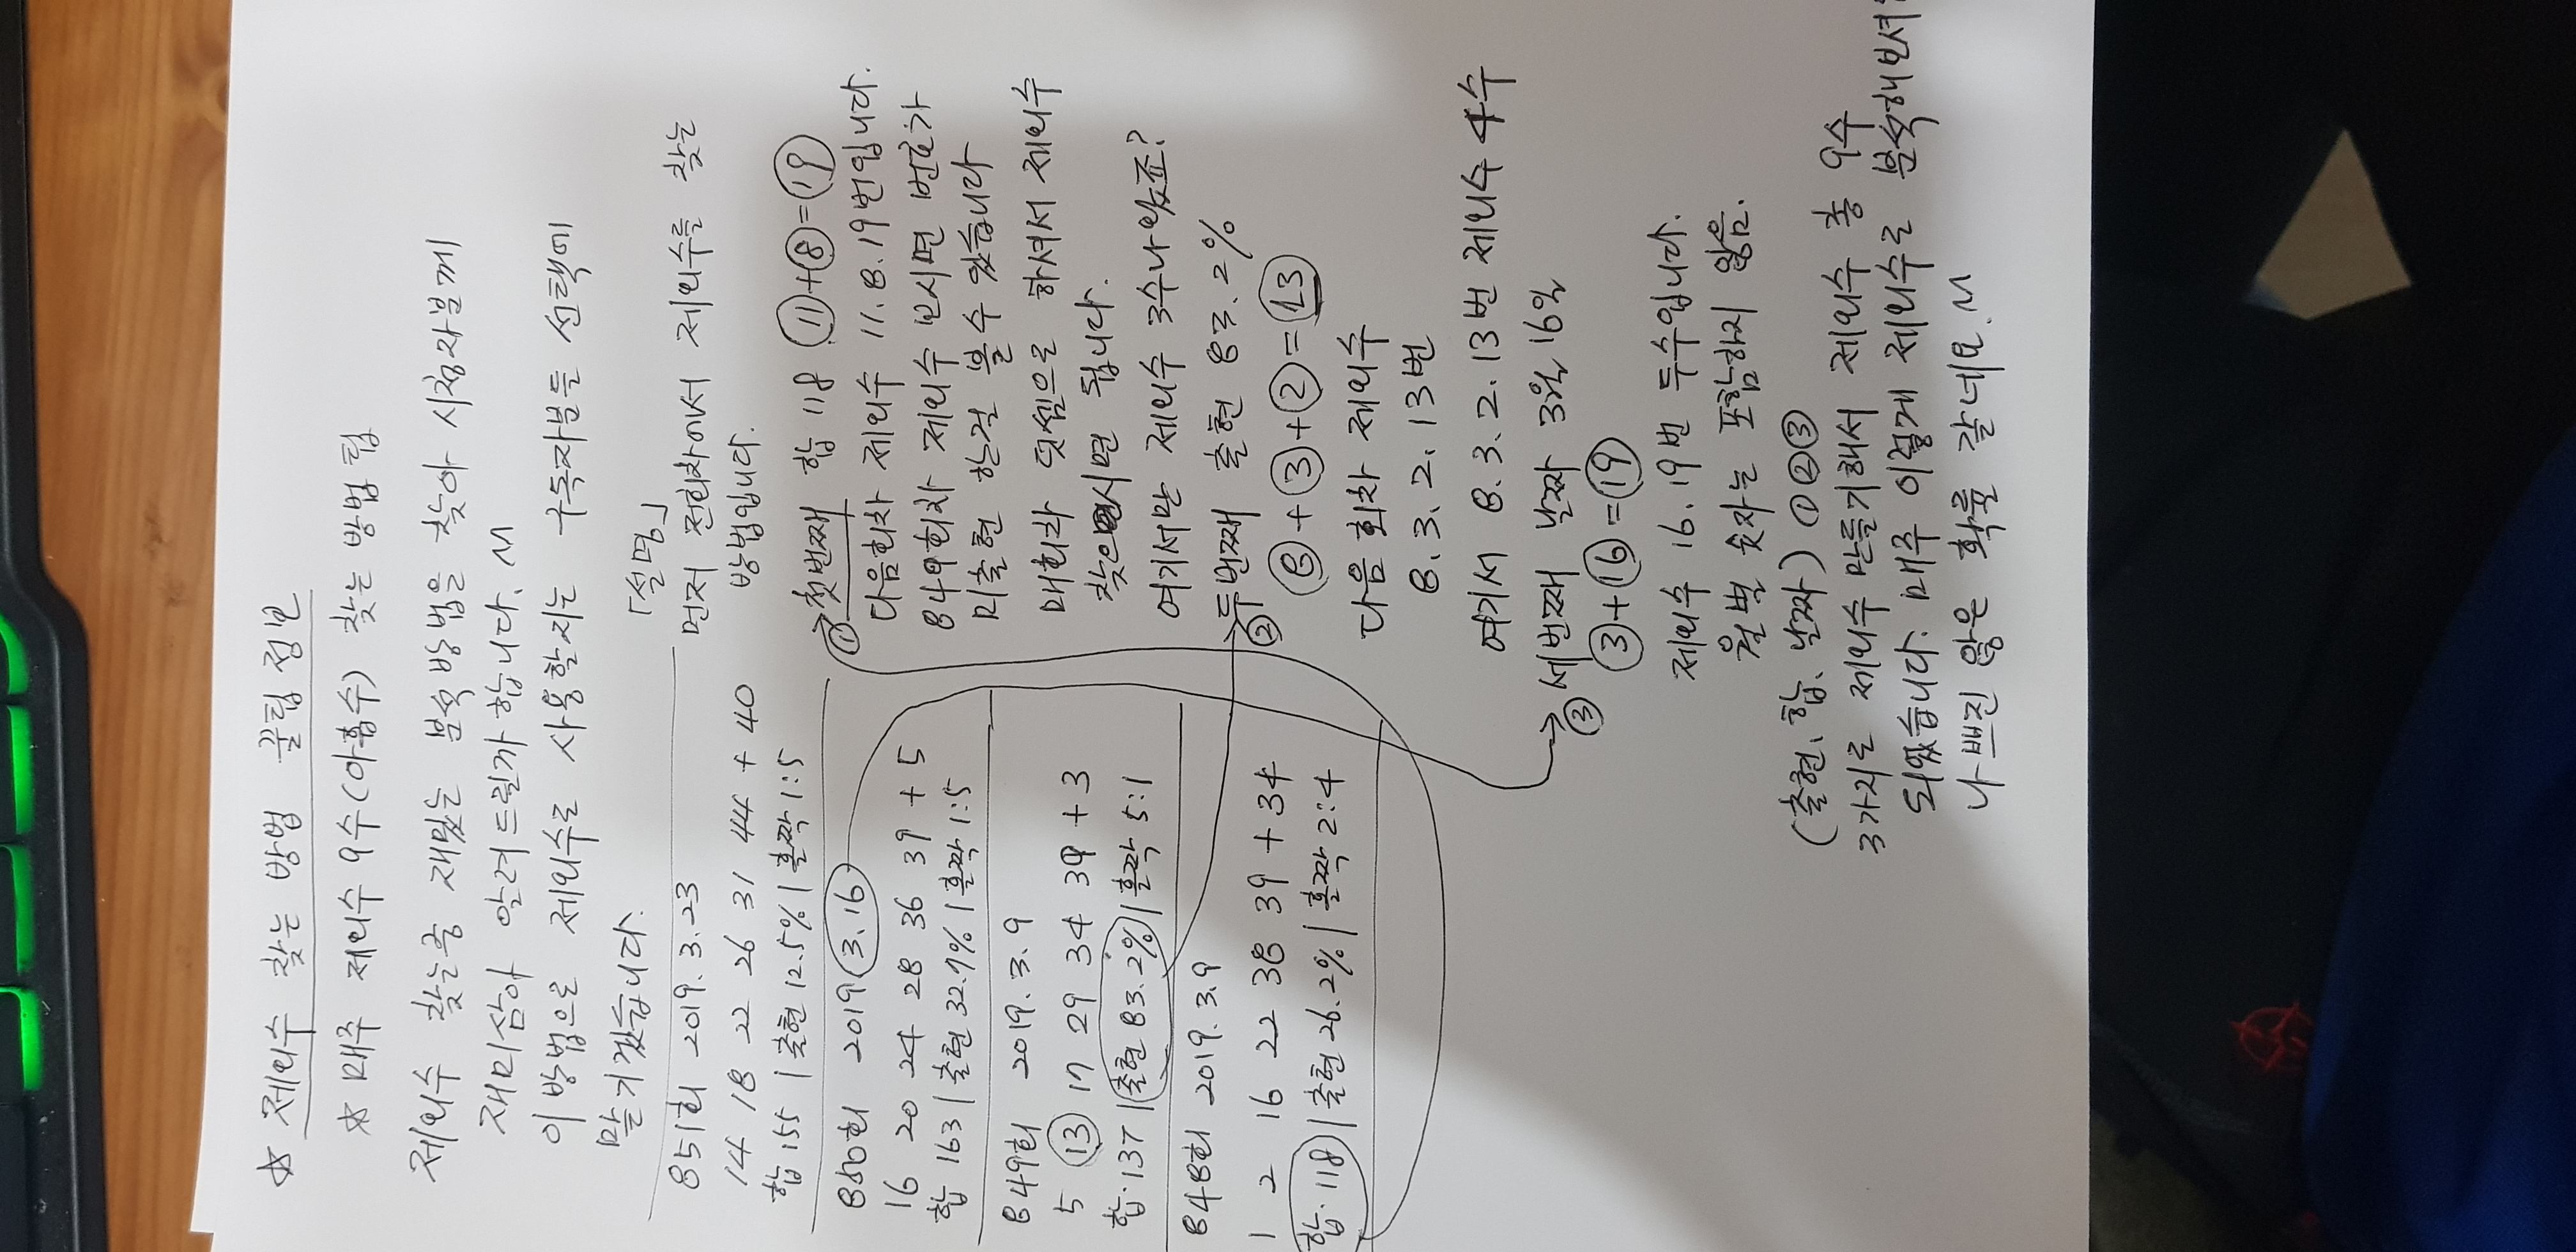 ☆ 제외수 찾는 방법 꿀팁 정보
☆ 매주 제외수 9수(아홉수) 찾는 방법 팁
제외수 찾는중 재밌는 분석 방법을 찾아 시청자분께
재미삼아 알려 드릴까 합니다.
이 방법으로 제외수로 사용할지는 구독자분들 선택에
맡기겠습니다.
851회 2019. 3. 23
14 18 22 26 31 44 + 40
합 155 | 출현 12.5% | 홀짝 1:5
850회 2019 3.16
16 20 24 28 36 39 + 5
합 163 | 출현 32.7% | 홀짝 1:5
849회 2019. 3. 9
5 13 17 29 34 39 + 3
합.137 | 출현 83.2% | 홀짝 5:1
848회 2019. 3.9
1 2 16 22 38 39 + 34
합. 118 | 출현 26.2% | 홀짝 2:4
「설명」
먼저 전회차에서 제외수를 찾는
방법입니다.
① 첫번째 합 118 11+8=19
다음회차 제외수 11.8.19번입니다.
849회차 제외수 보시면 번호가
미출현 한걸 볼수 있습니다
매회차 덧셈으로 하셔서 제외수
찾으시면 됩니다.
여기서만 제외수 3수나왔죠?
② 두번째 출현 83.2%
8+3+2=13
다음 회차 제외수
8.3.2.13번
여기서 8.3.2.13번 제외수 4수
③ 세번째 날짜 3월 16일
3+16=19
제외수 16.19번 두수입니다.
월별 숫자는 포함하지 않음.
(출현, 합, 날짜) ①②③
3가지로 제외수 만들기해서 제외수 총 9수
되었습니다. 매주 이렇게 제외수를 분석해보셔
나쁘진 않은 확률 같네요.